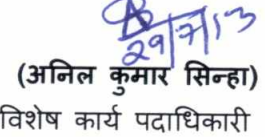 29/7/13
(अनिल कुमार सिन्हा)
विशेष कार्य पदाधिकारी